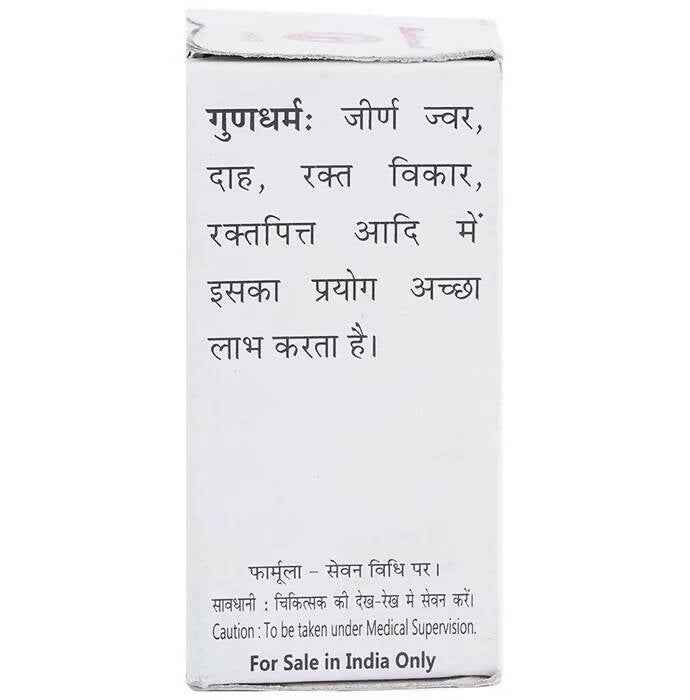 गुणधर्म: जीर्ण ज्वर,
दाह, रक्त विकार,
रक्तपित्त आदि में
इसका प्रयोग अच्छा
लाभ करता है।
फार्मूला – सेवन विधि पर।
सावधानी : चिकित्सक की देख-रेख मे सेवन करें।
Caution : To be taken under Medical Supervision.
For Sale in India Only